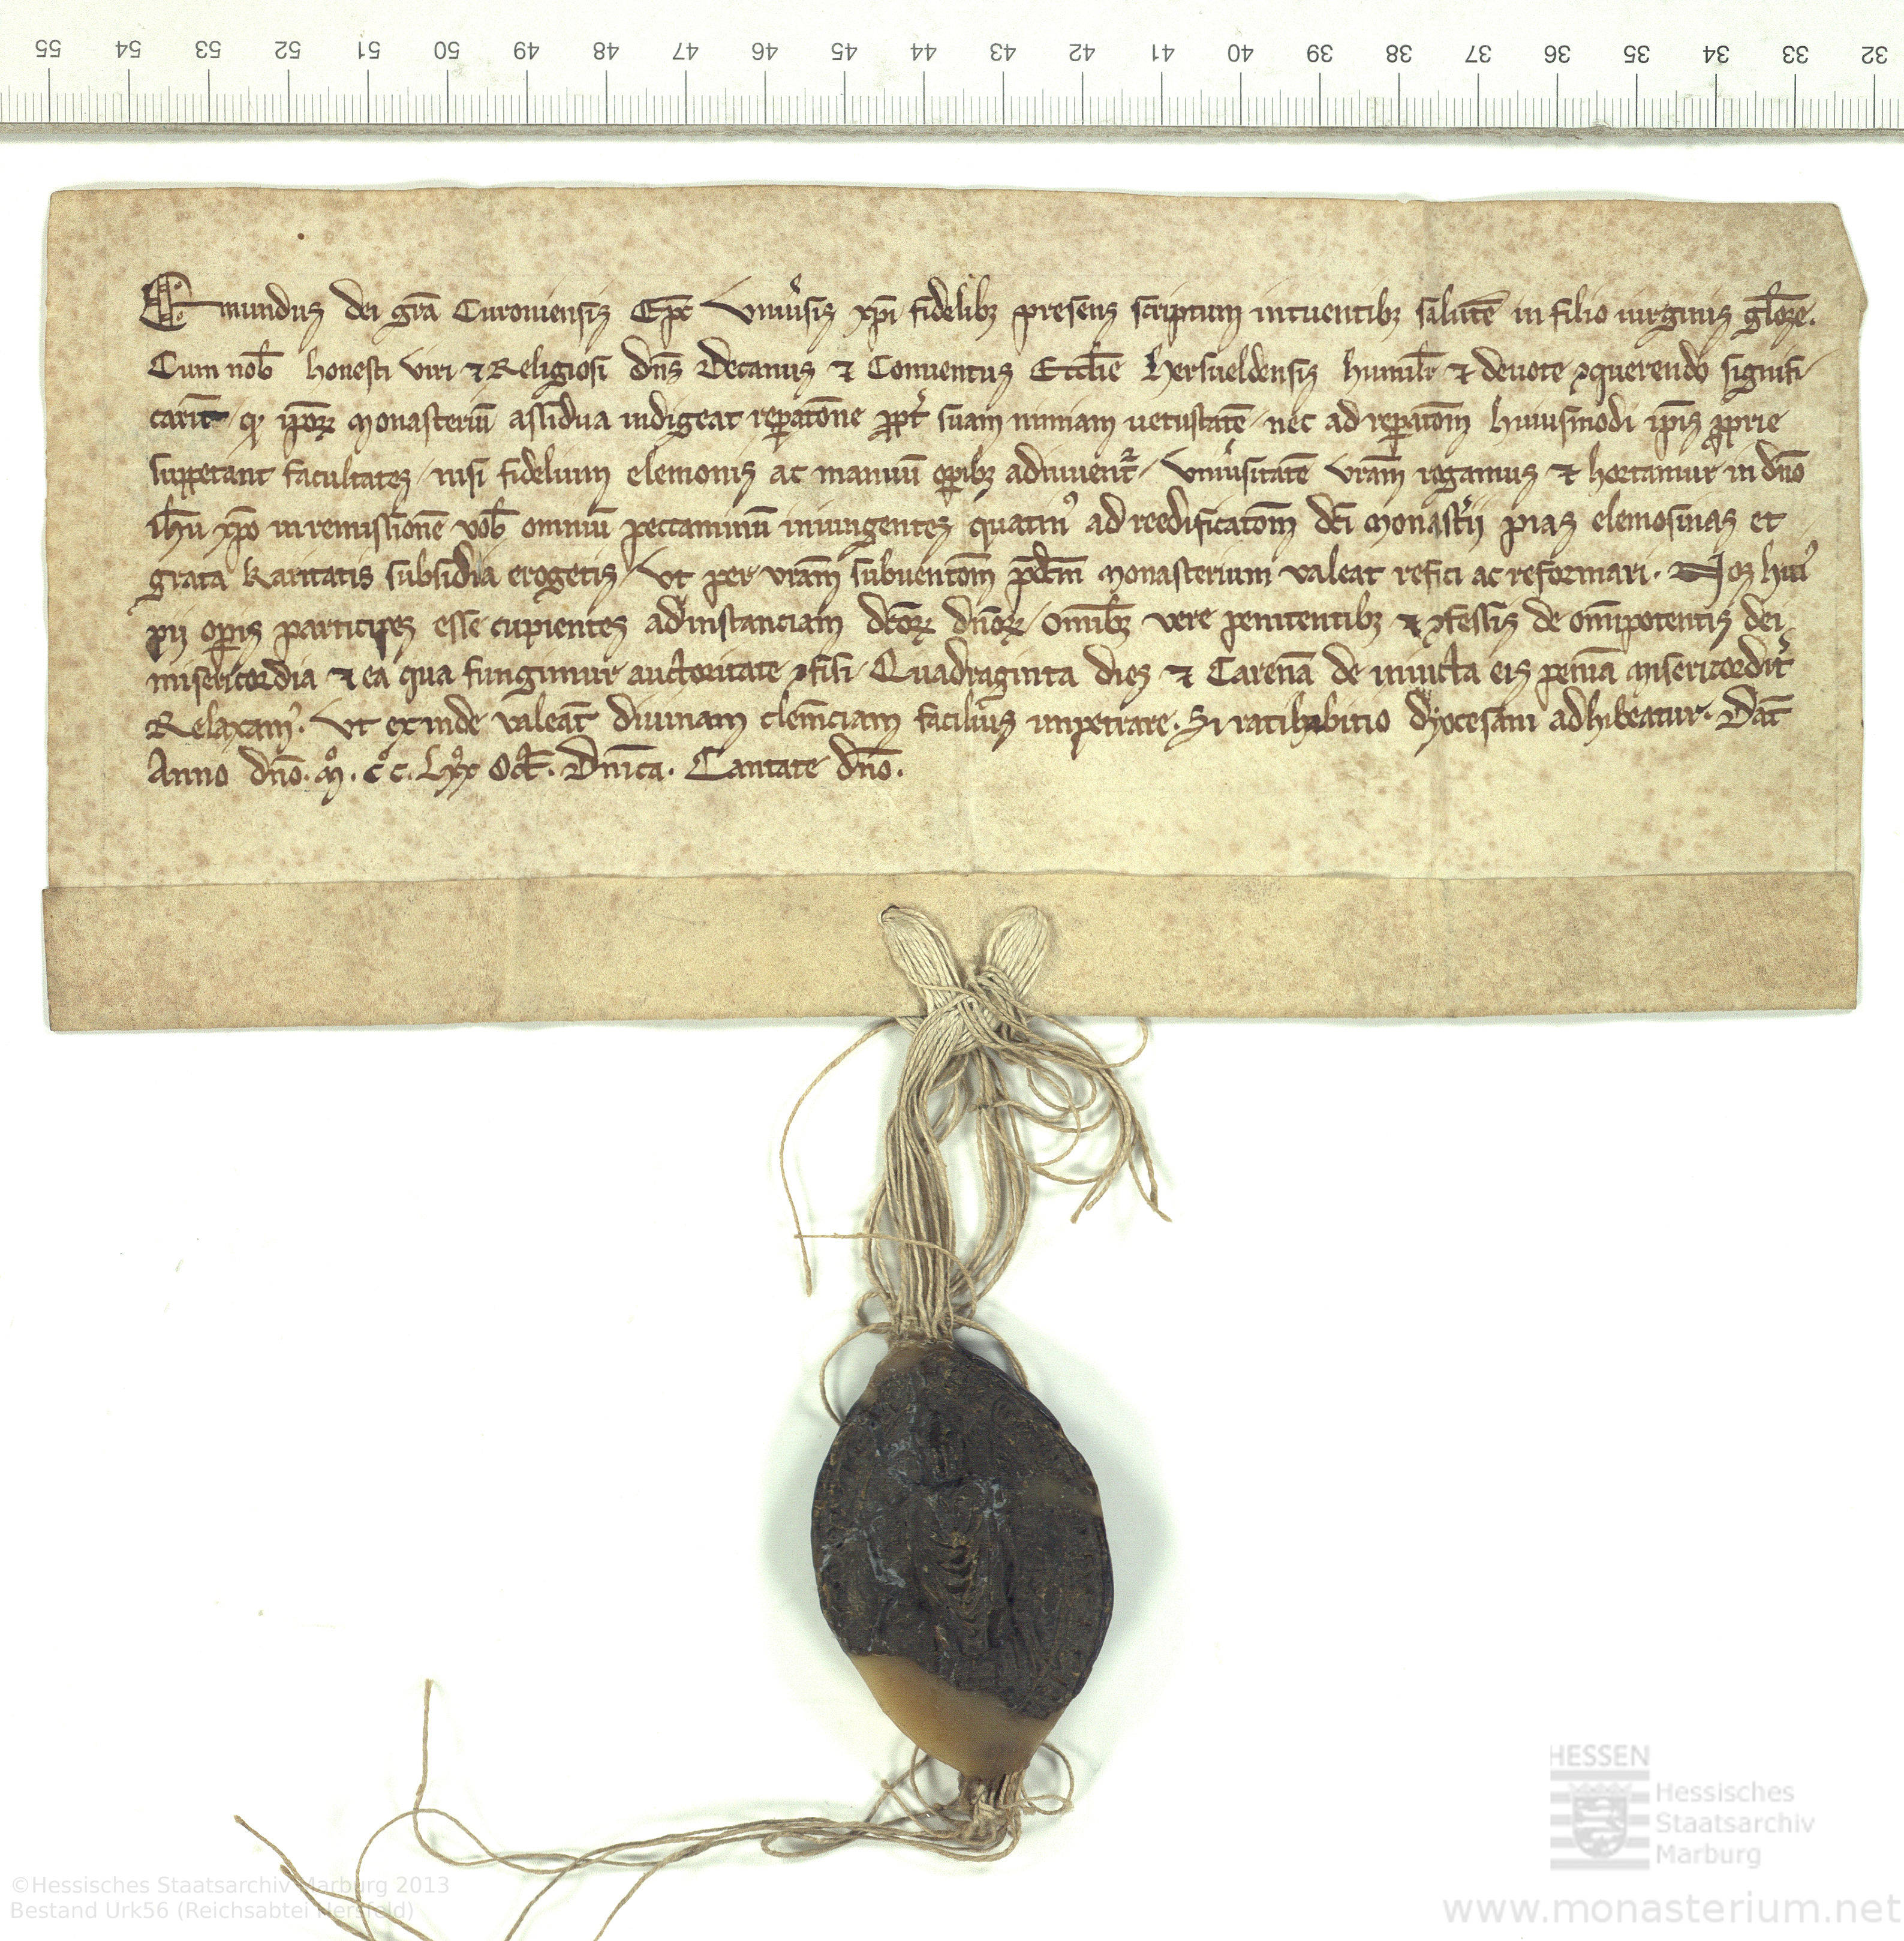 55 54 53 52 51 50 49 48 47 46 45 44 43 42 41 40 39 38 37 36 35 34 33 32
Emundus dei gr̄a Curoniensis Ep̄c Vniu'sis xp̄i fidelibꝫ presens scriptum intuentibꝫ salutē in filio uirginis gl̄oꝛẽ.
Cum nob̄ honesti viri ⁊ Religiosi dn̄s Decanus ⁊ Conuentus Eccl̄ie Hersueldensis humil̄r ⁊ deuote ꝯquerendo signifi-
carīt / ꝙ ip̄oꝝ Monasteriū assidua indigeat rep̄atōne ꝓpt' suam nimiam uetustatē / nec ad rep̄atōm huiusmodi ip̄is ꝓprie
suppetant facultates / nisi fidelium elemonis ac manuū op̄ibꝫ adiuuent᷑ / Vniu'sitatē vr̄am rogamus ⁊ hortamur in dn̄o
ih̄u xp̄o in remissionē vob̄ omniū peccaminū iniungentes quatinꝰ ad reedificatōm dc̄i Monast'ii pias elemosinas et
grata karitatis subsidia erogetis / Vt per vr̄am subuentōm p̄dc̄m Monasterium valeat refici ac reformari. Nos huiꝰ
pij op̄is participes esse cupientes ad instanciam dc̄oꝝ dn̄oꝝ / omīb̄ꝫ vere penitentibꝫ ⁊ ꝯfessis de om̄ipotentis dei
misericordia ⁊ ea qua fungimur auctoritate ꝯfisi Quadraginta dies ⁊ Carenā de iniuncta eis penīā misericordit'
Relaxamꝰ. Vt ex inde valeāt diuinam clem̄ciam facilius impetrare. Si ratihabitio dyocesani adhibeatur. Dat̄
Anno dn̄o. Mͦ. CͦC. Lxͦx Oct̄. Dn̄ica. Cantate dn̄o.
HESSEN
Hessisches
Staatsarchiv
Marburg
©Hessisches Staatsarchiv Marburg 2013
Bestand Urk56 (Reichsabtei Hersfeld)
www.monasterium.net